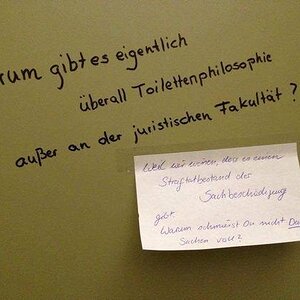 rum gibt es eigentlich
überall Toilettenphilosophie
außer an der juristischen Fakultät?
Weil wir wissen, dass es einen
Straftatbestand der
Sachbeschädigung
gibt.
Warum schmierst Du nicht
Sachen voll?